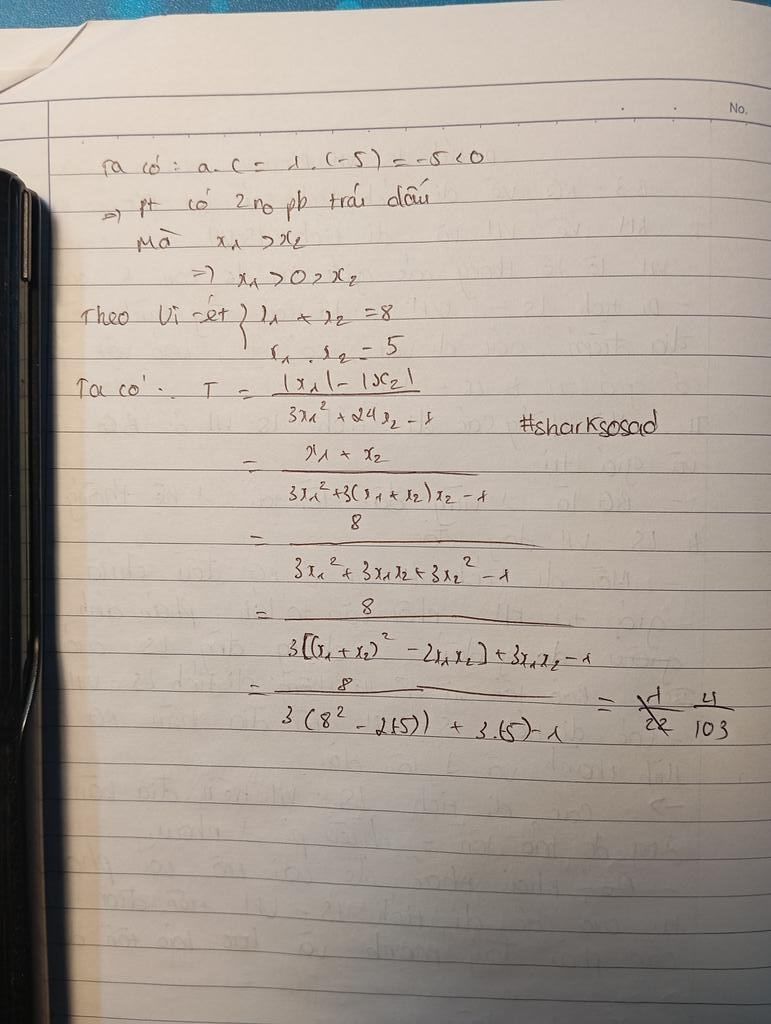 No.
Ta có: a.c = 1.(-5) = -5 < 0
=> pt có 2 no pb trái dấu
Mà x₁ > x₂
=> x₁ > 0 > x₂
Theo Vi-ét { x₁ + x₂ = 8
x₁ . x₂ = 5
Ta có: T = (|x₁| - |x₂|) / (3x₁² + 24x₂ - 1)
#sharksosad
= (x₁ + x₂) / (3x₁² + 3(x₁ + x₂)x₂ - 1)
= 8 / (3x₁² + 3x₁x₂ + 3x₂² - 1)
= 8 / (3[(x₁ + x₂)² - 2x₁x₂] + 3x₁x₂ - 1)
= 8 / (3(8² - 2(-5)) + 3.(-5) - 1) = 4/103